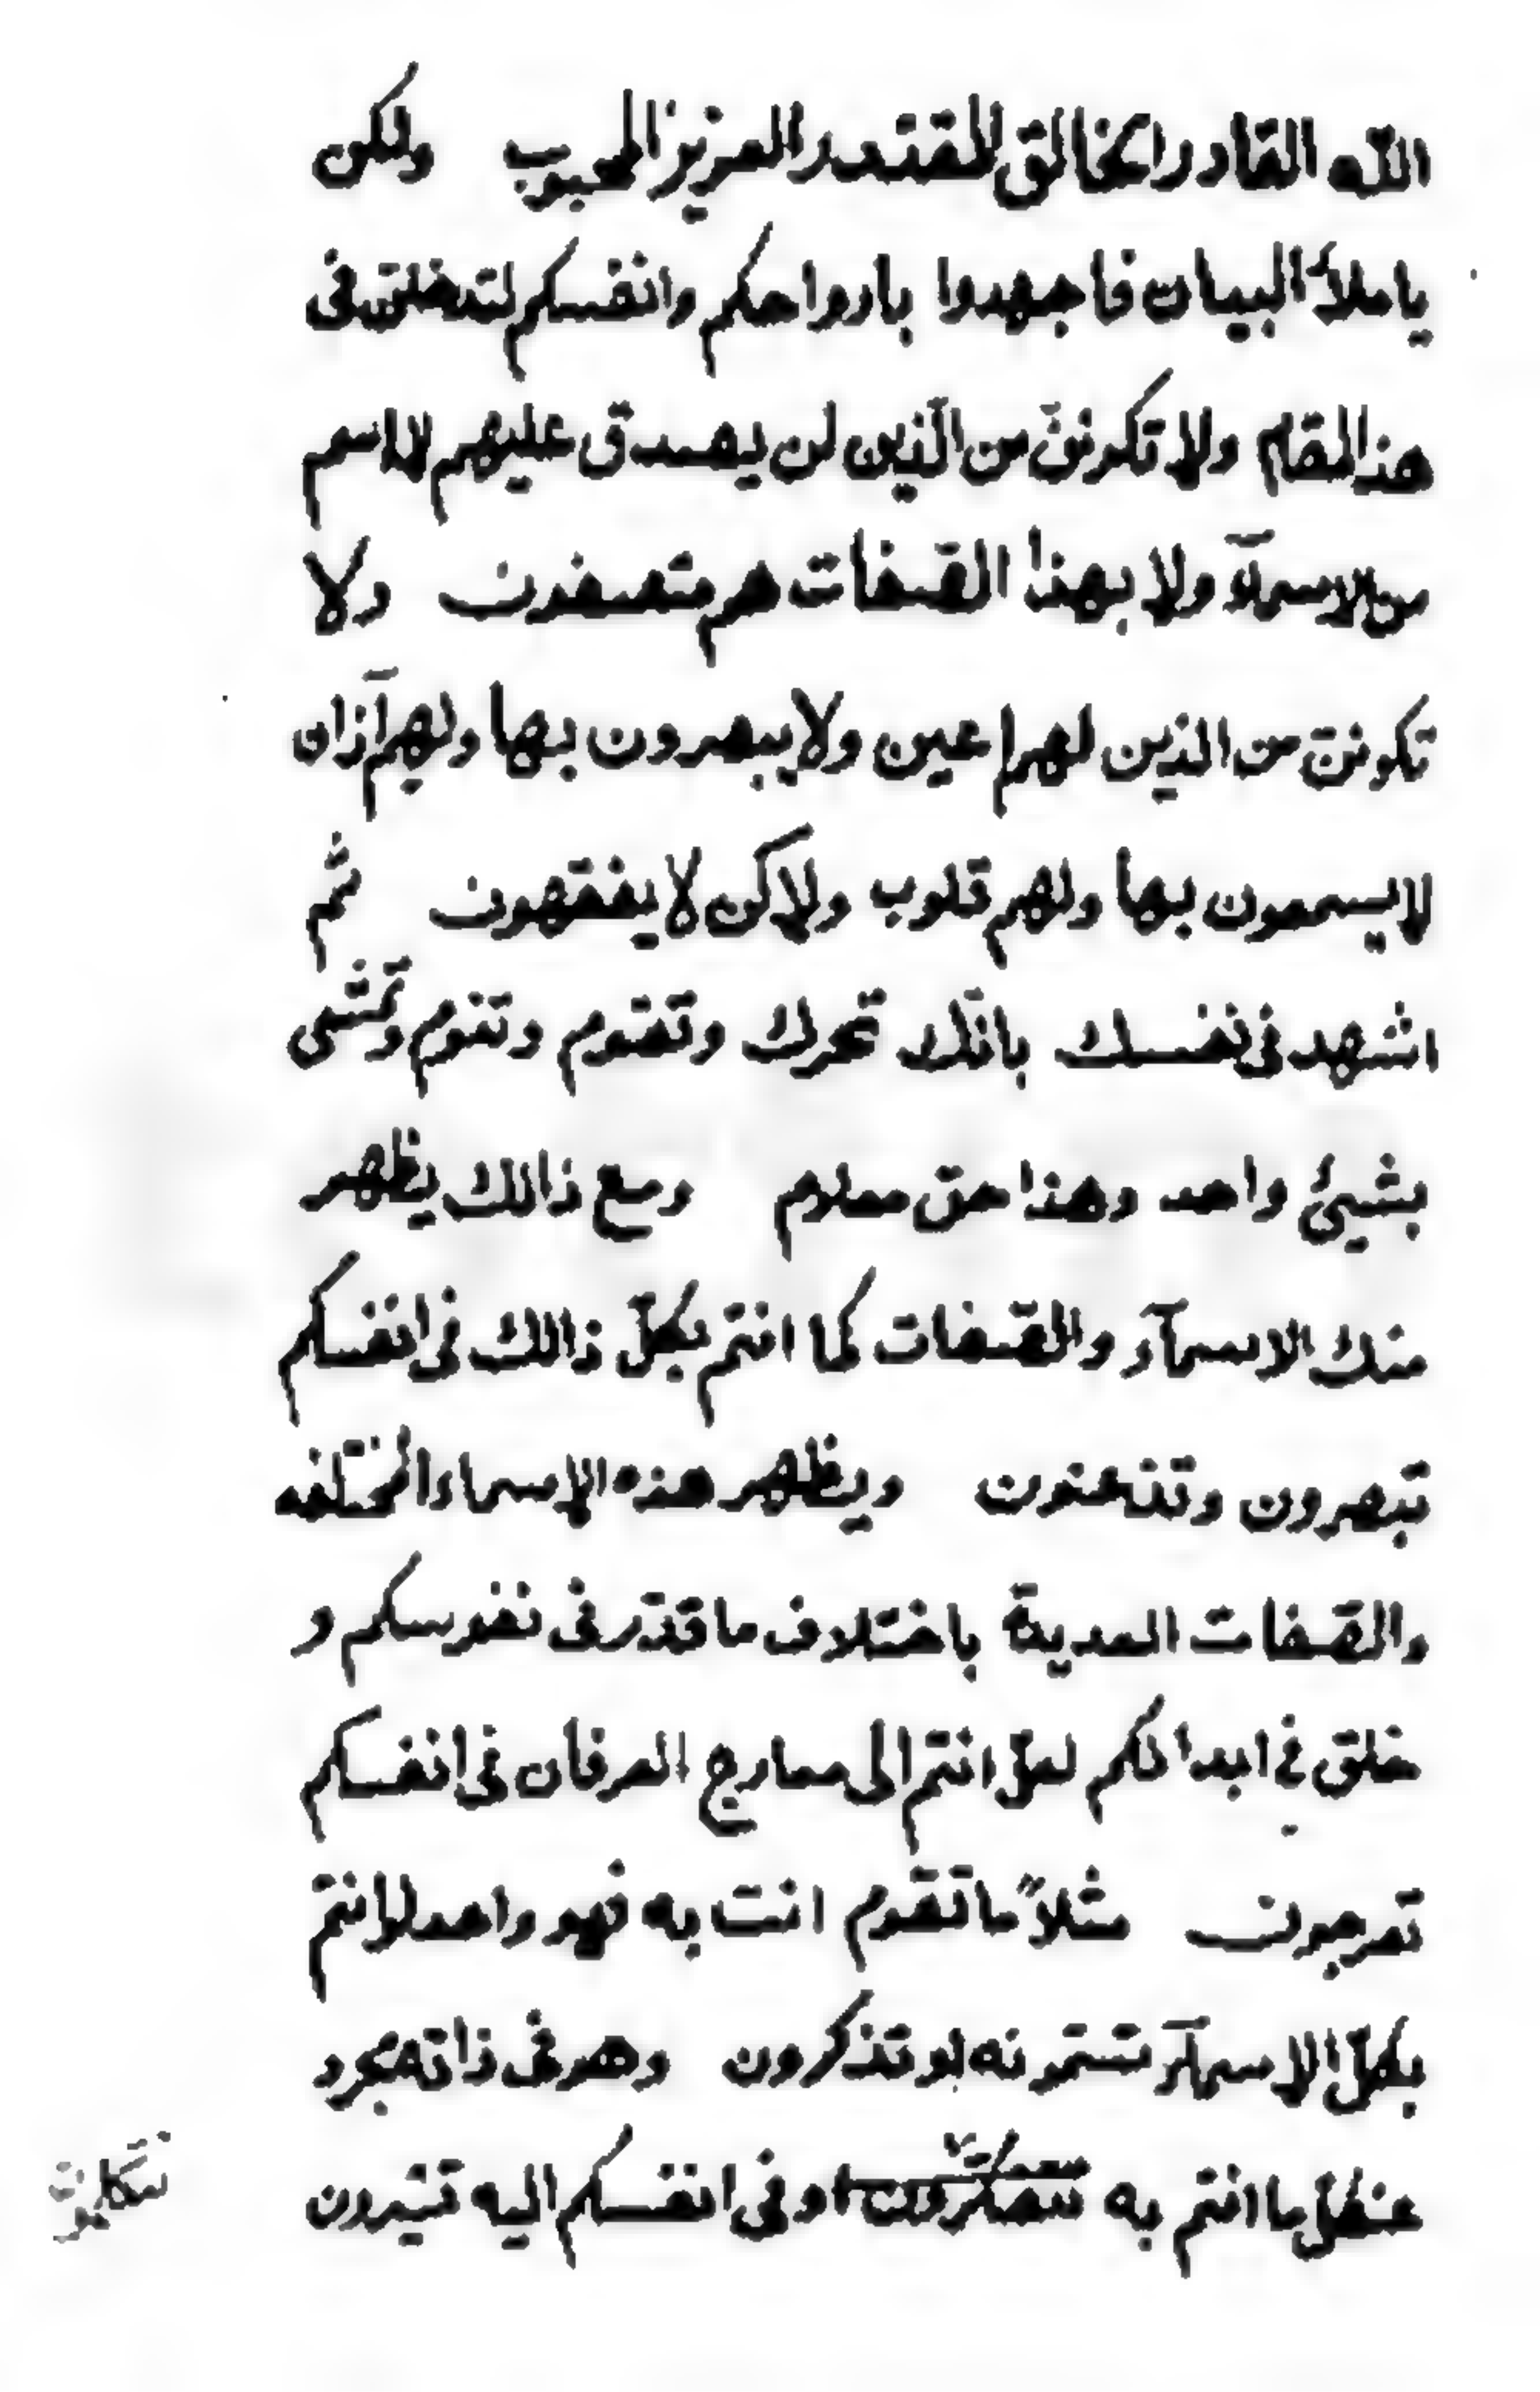 الله القادر الخالق المقتدر العزيز المحبوب ولكن
يا ملأ البيان فاجهدوا بارواحكم وانفسكم لتدخلنّ فى
هذا المقام ولا تكوننّ من الّذين لن يصدق عليهم لا اسم
من الاسمآء ولا بهذا الصّفات هم متصفون ولا
تكوننّ من الذين لهم اعين ولا يبصرون بها ولهم آذان
لا يسمعون بها ولهم قلوب ولاكن لا يفقهون ثم
اشهد فى نفسك بانّك تحرك وتقوم وتنوم وتمشى
بشيئ واحد وهذا حق معلوم ومع ذالك يظهر
منك الاسمآء والصّفات كما انتم بكلّ ذالك فى انفسكم
تبصرون وتذعنون ويظهر هذه الاسماء المختلفه
والصّفات العديدة باختلاف ما قدّر فى نفوسكم و
خلق فى ابدانكم لعلّ انتم الى معارج العرفان فى انفسكم
تعرجون مثلاً ما تقوم انت به فهو واحد لو انتم
بكلّ الاسمآء تسمّونه او تذكرون وهو فى ذاته مجرد
عن كلّ ما انتم به او فى انفسكم اليه تشيرون
تتكلمون